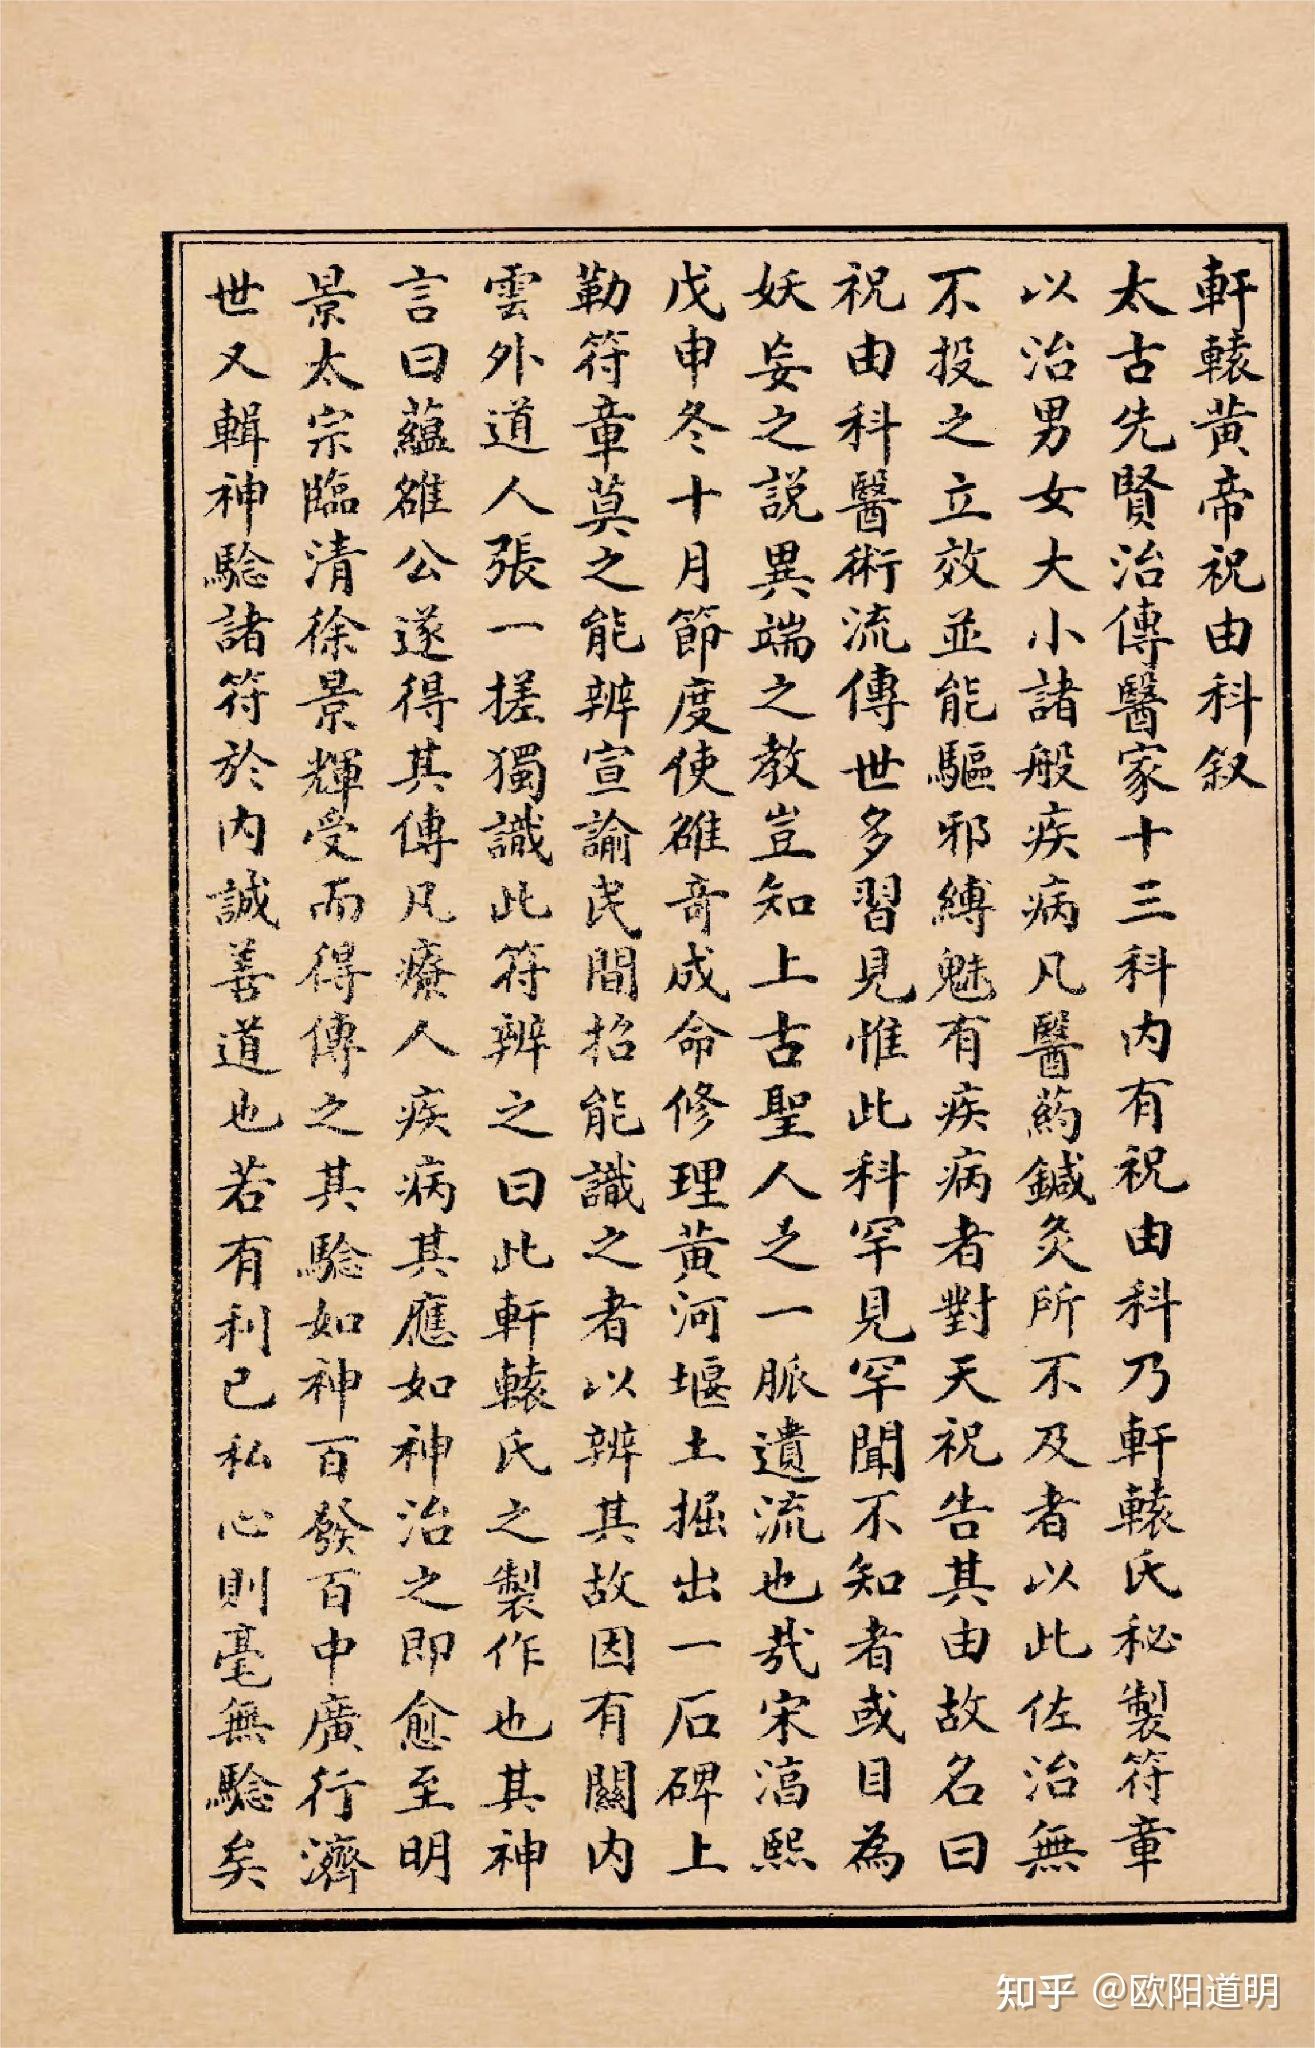 軒轅黃帝祝由科叙
太古先賢治傳醫家十三科内有祝由科乃軒轅氏秘製符章
以治男女大小諸般疾病凡醫藥鍼灸所不及者以此佐治無
不投之立效並能驅邪縛魅有疾病者對天祝告其由故名曰
祝由科醫術流傳世多習見惟此科罕見罕聞不知者或目為
妖妄之説異端之教豈知上古聖人之一脈遺流也哉宋淳熙
戊申冬十月節度使雒奇成命修理黃河堰土掘出一石碑上
勒符章莫之能辨宣諭民間招能識之者以辨其故因有關内
雲外道人張一搓獨識此符辨之曰此軒轅氏之製作也其神
言曰蘊雒公遂得其傳凡療人疾病其應如神治之即愈至明
景太宗臨清徐景輝受而得傳之其騐如神百發百中廣行濟
世又輯神騐諸符於内誠善道也若有利己私心則毫無騐矣
知乎 @欧阳道明